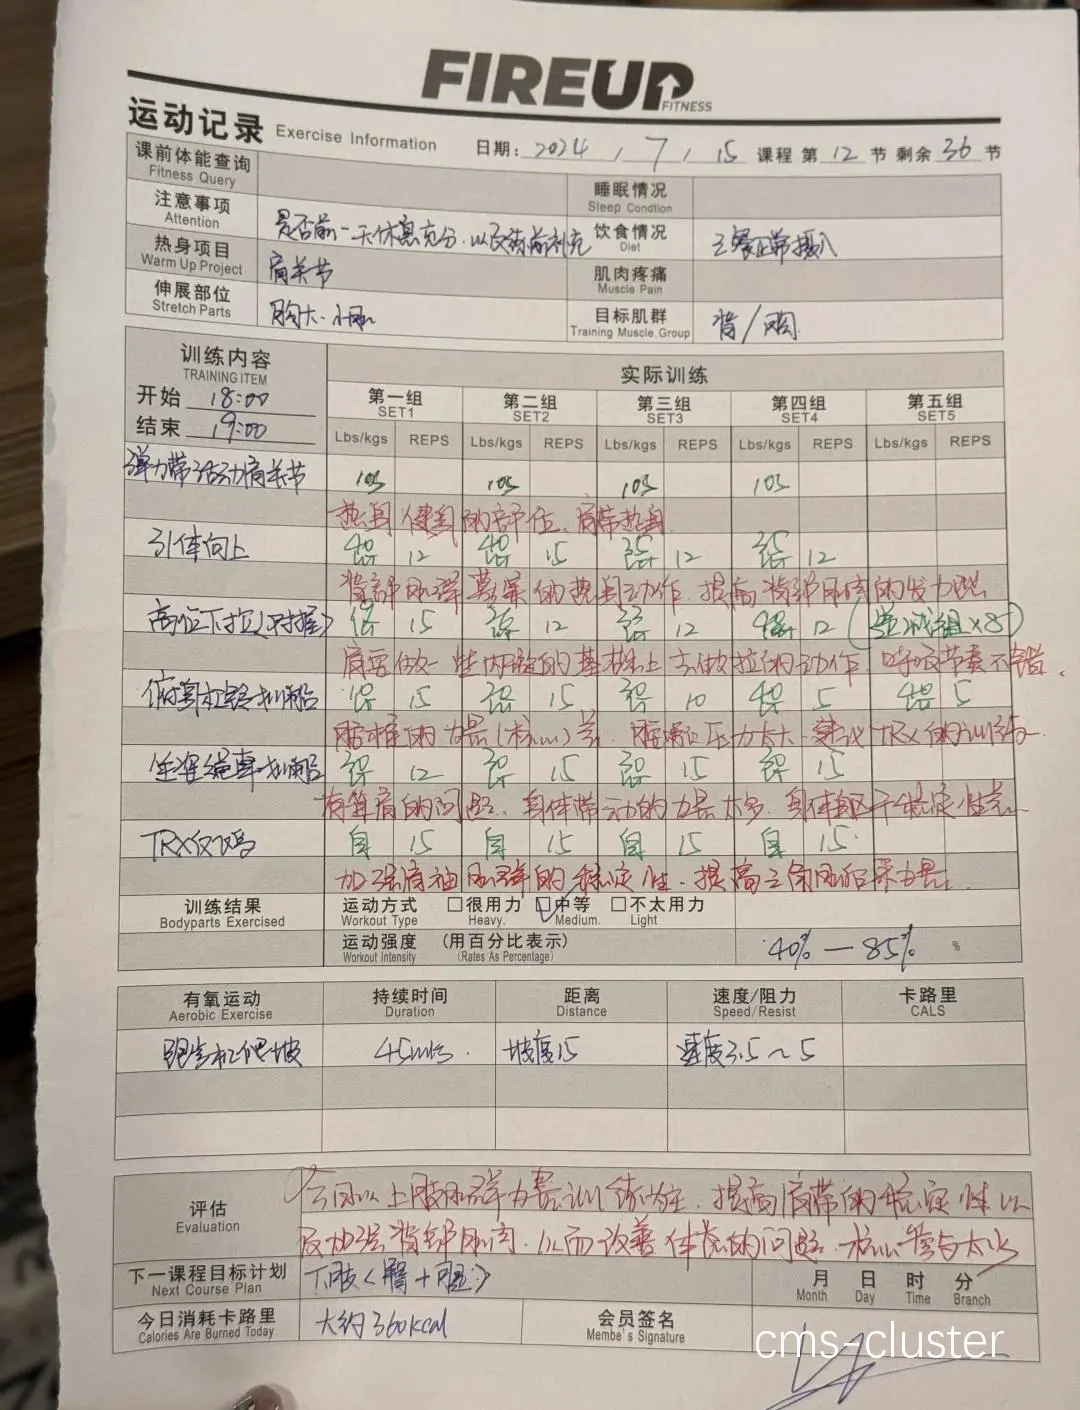 FIREUP
FITNESS
运动记录 Exercise Information 日期: 2024 / 7 / 15 课程 第 12 节 剩余 36 节
课前体能查询
Fitness Query
睡眠情况
Sleep Condtion
注意事项
Attention
是否前一天休息充分.以及练前补充
饮食情况
Diet
三餐正常摄入
热身项目
Warm Up Project
肩关节
肌肉疼痛
Muscle Pain
伸展部位
Stretch Parts
胸大.小肌
目标肌群
Training Muscle Group
背/
训练内容
TRAINING ITEM
实际训练
开始 18:00
结束 19:00
第一组 第二组 第三组 第四组 第五组
SET1 SET2 SET3 SET4 SET5
Lbs/kgs REPS Lbs/kgs REPS Lbs/kgs REPS Lbs/kgs REPS Lbs/kgs REPS
弹力带活动肩关节 10s 10s 10s 10s
热身 健身的部位.肩带热身.
引体向上 40 12 40 15 35 12 35 12
背部肌群募集的热身动作.提高背部肌肉的发力
高位下拉(对握) 15 12 12 12
肩要做一些内旋的基础上去做拉的动作 呼吸节奏不错.
俯身杠铃划船 15 15 10 5 5
腰椎的力量(核心)差. 腰椎压力太大.建议TRX的训练.
坐姿绳索划船 12 15 15 15
有耸肩的问题.身体带动的力量太多.身体躯干稳定性差
TRX 自 15 自 15 自 15 自 15
加强肩袖肌群的稳定性.提高三角肌后束力量.
训练结果
Bodyparts Exercised
运动方式 □很用力 □中等 □不太用力
Workout Type Heavy. Medium. Light
运动强度 (用百分比表示)
Workout Intensity (Rates As Percentage)
40% — 85% %
有氧运动 持续时间 距离 速度/阻力 卡路里
Aerobic Exercise Duration Distance Speed/Resist CALS
跑步机爬坡 45mins. 坡度15 速度3.5~5
评估
Evaluation
今日以上肢肌群力量训练为主.提高肩带的稳定性以
及加强背部肌肉.从而改善体态的问题.核心参与太少
下一课程目标计划
Next Course Plan
下肢(臀+腿)
月 日 时 分
Month Day Time Branch
今日消耗卡路里
Calories Are Burned Today
大约360kcal
会员签名
Membe's Signature
cms-cluster